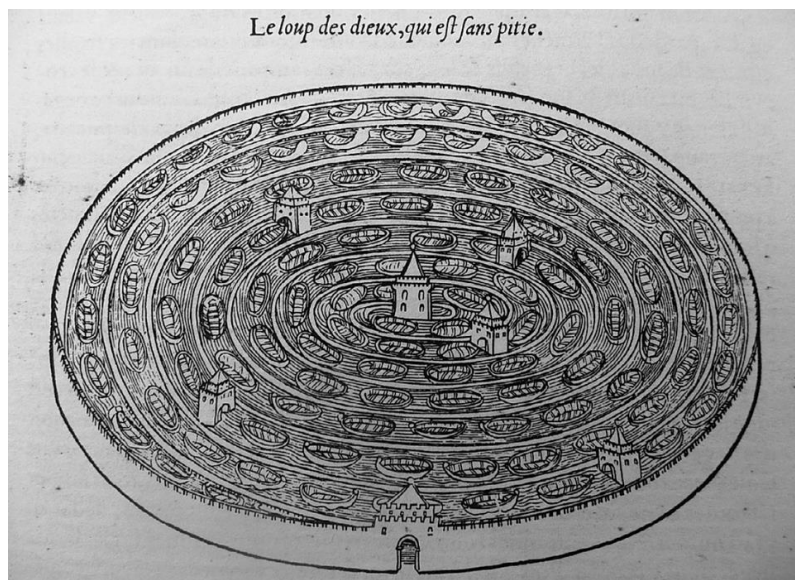 Le loup des dieux, qui eſt ſans pitie.